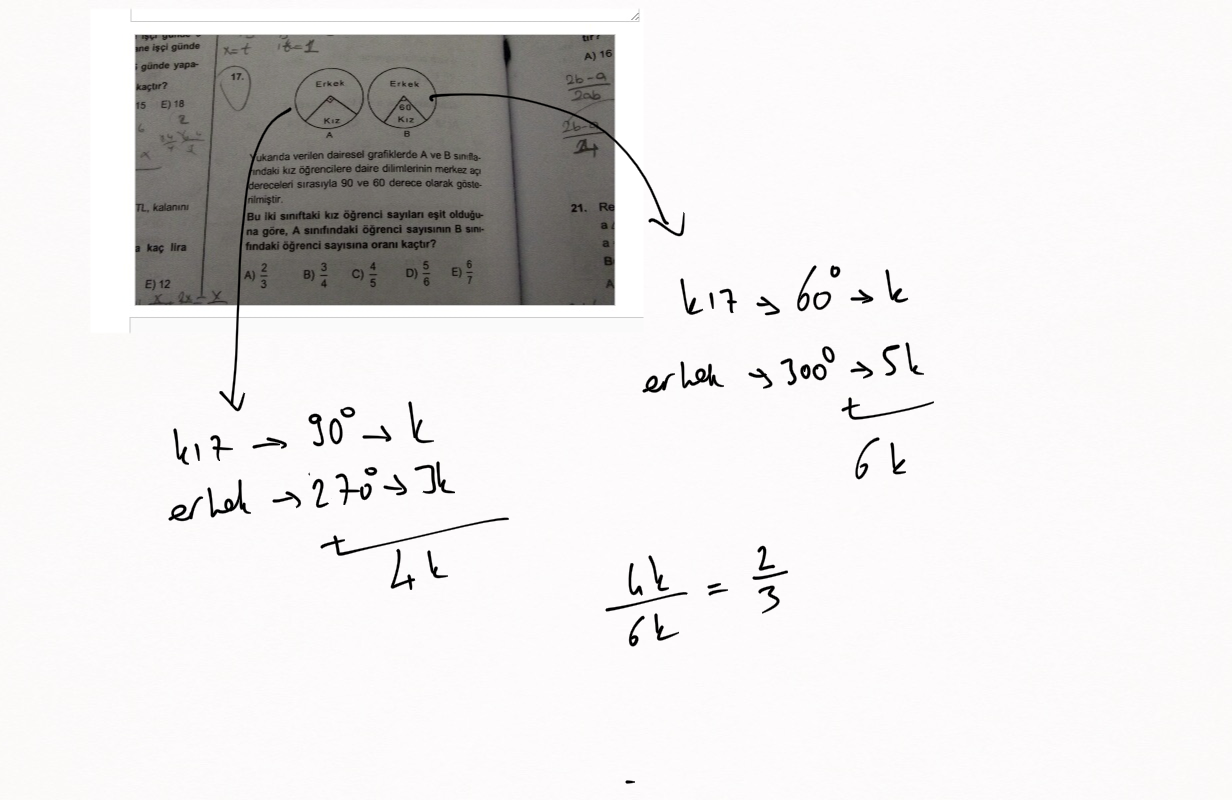 ne işçi günde
günde yapa-
kaçtır?
15 E) 18
TL, kalanını
kaç lira
E) 12
x 2x - x
x=t
17.
Erkek
Kız
A
Erkek
60
Kız
B
Yukarıda verilen dairesel grafiklerde A ve B sınıfla-
rındaki kız öğrencilere daire dilimlerinin merkez açı
dereceleri sırasıyla 90 ve 60 derece olarak göste-
rilmiştir.
Bu iki sınıftaki kız öğrenci sayıları eşit olduğu-
na göre, A sınıfındaki öğrenci sayısının B sını-
fındaki öğrenci sayısına oranı kaçtır?
A) 2/3 B) 3/4 C) 4/5 D) 5/6 E) 6/7
tır?
A) 16
2b-a
2ab
21. Re
a
a
B
A
kız → 60° → k
erkek → 300° → 5k
+
6k
kız → 90° → k
erkek → 270° → 3k
+
4k
4k/6k = 2/3